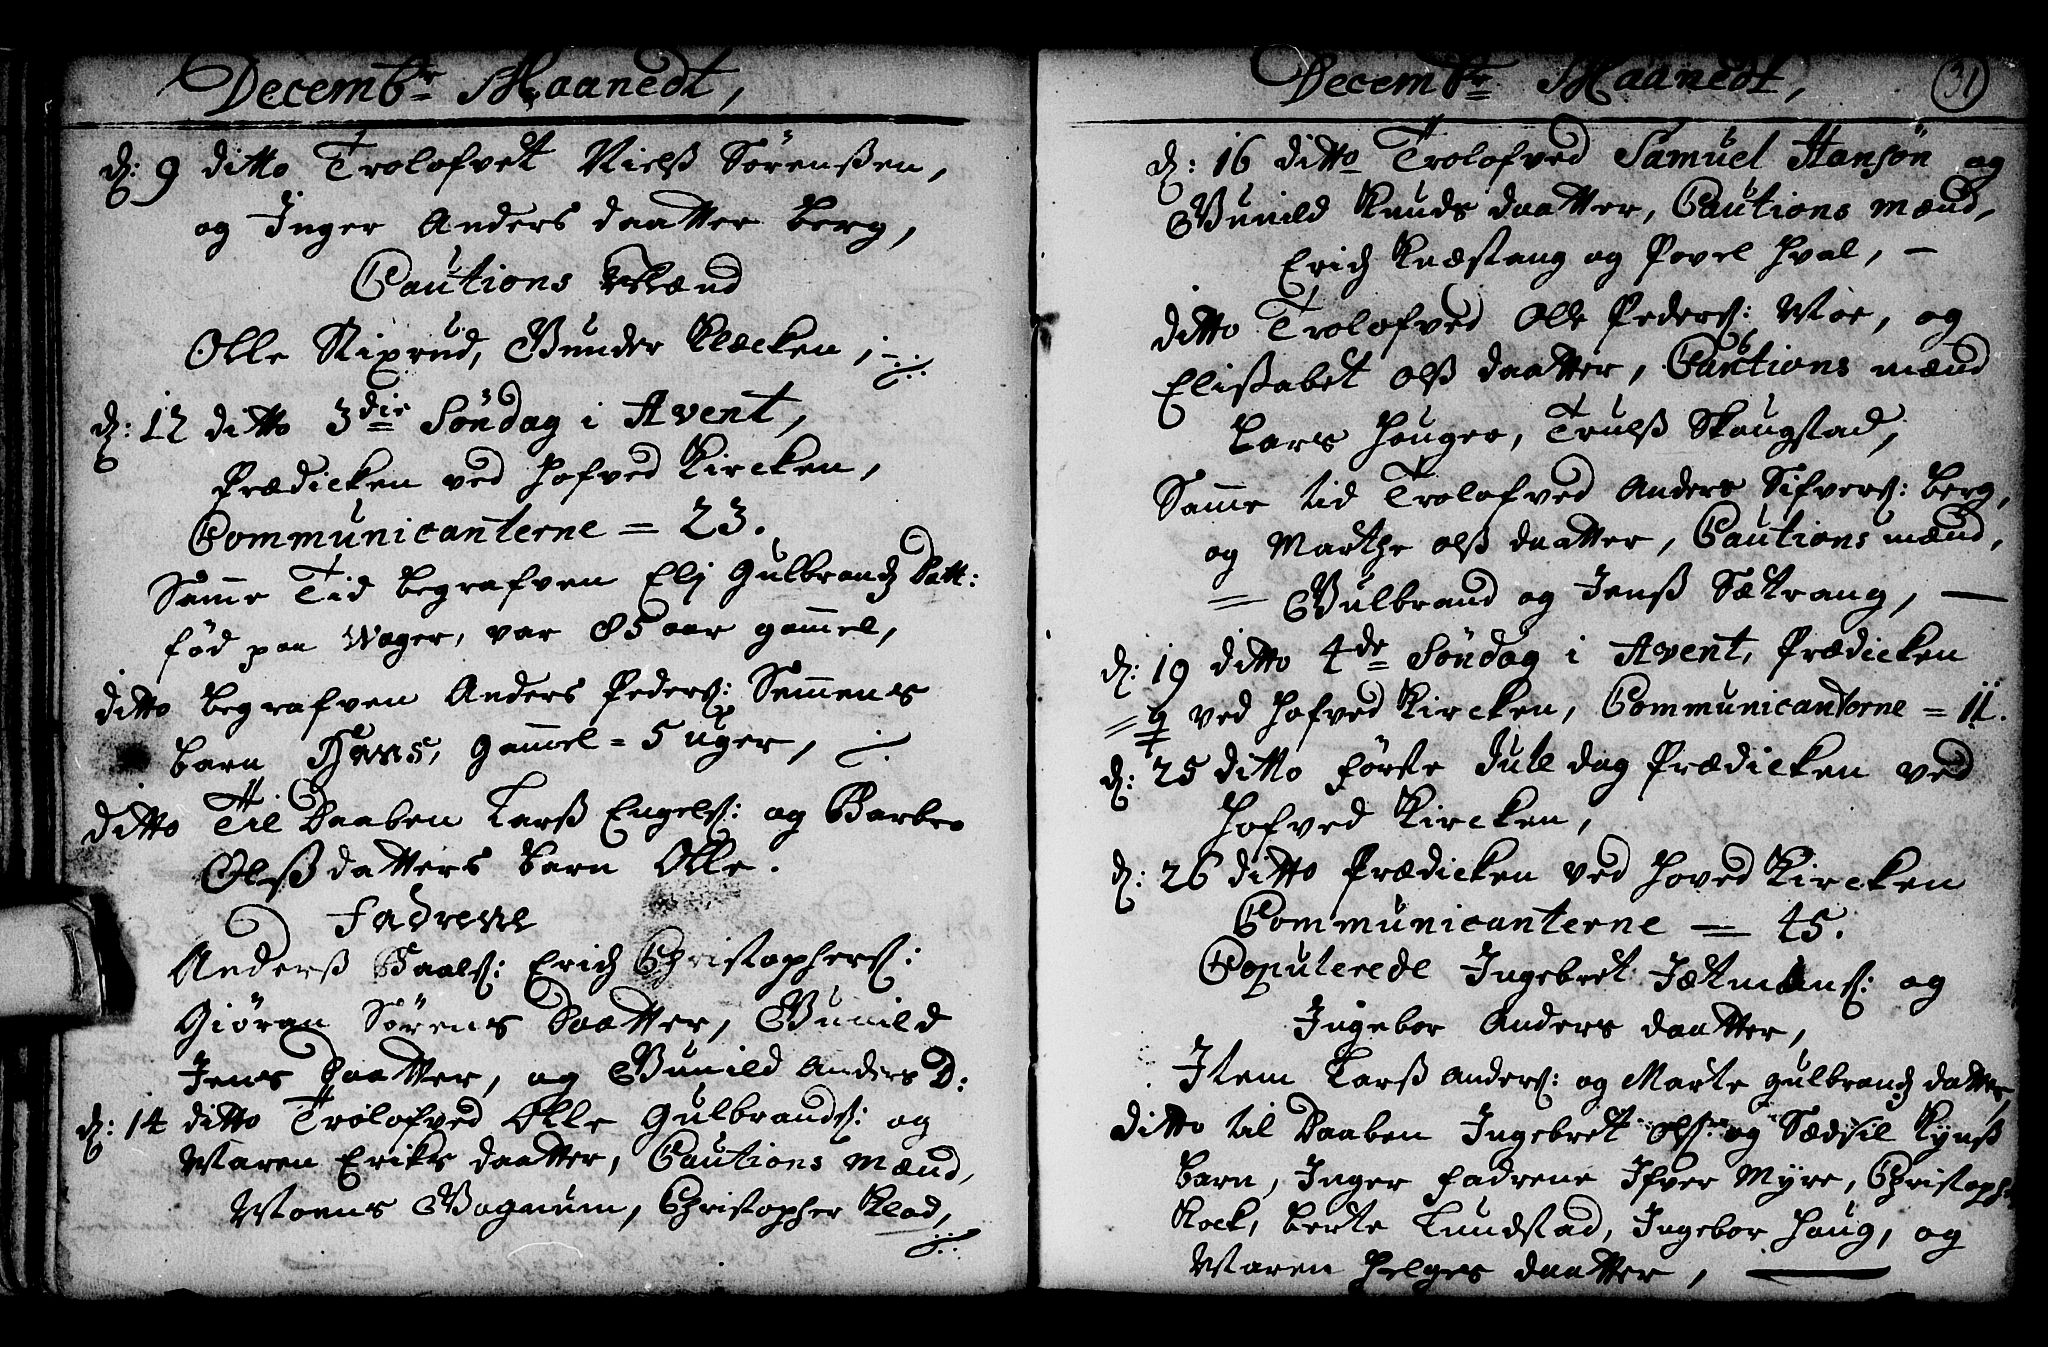 Decembr Maanedt,
d: 9 ditto Trolofvet Nielß Sörenßen,
og Inger Anders daatter berg,
Cautions Mænd
Olle Rixrud, Gunder Klecken,
d: 12 ditto 3die Söndag i Avent,
Prædicken ved Hofved Kircken,
Communicanterne = 23.
Samme Tid begrafven Elj Gulbrands Datt:
föd paa Wager, var 85 aar gammel,
ditto begrafven Anders Peders: Semmens
barn Hans, gammel = 5 uger,
ditto Til Daaben Larß Engels: og Barbro
Olßdatters barn Olle.
Fadrene
Anderß Haals: Erich Christophers:
Giöran Sörens Daatter, Gunild
Jens Daatter, og Gunild Anders D:
d: 14 ditto Trolofved Olle Gulbrands: og
Maren Eriks daatter, Cautions mænd,
Moens Gognum, Christopher Klod,
Decembr Maanedt,
31
d: 16 ditto Trolofved Samuel Hansön og
Gunild Knuds daatter, Cautions mænd,
Erich Knestang og Povel Hval, –
ditto Trolofved Olle Peders: Moe, og
Elisabet Olß daatter, Cautions mænd
Lars Hougro, Trulß Skougstad,
Samme tid Trolofved Anders Sifvers: berg,
og Marthe olß daatter, Cautions mænd,
= Gulbrand og Jenß Sætrang, —
d: 19 ditto 4de Söndag i Avent, Prædicken
ved Hofved Kircken, Communicanterne = 11.
d: 25 ditto förste Jule dag Prædicken ved
Hofved Kircken,
d: 26 ditto Prædicken ved Hoved Kircken
Communicanterne = 45.
Copulerede Ingebret Jætmans: og
Ingebor Anders daatter,
Item Larß Anders: og Marte Gulbrands datter,
ditto til Daaben Ingebret Ols: og Sædsil Kynß
barn, Inger fadrene Ifver Myre, Christoph
Kock, berte Lundstad, Ingebor Houg, og
Maren Helges daatter,